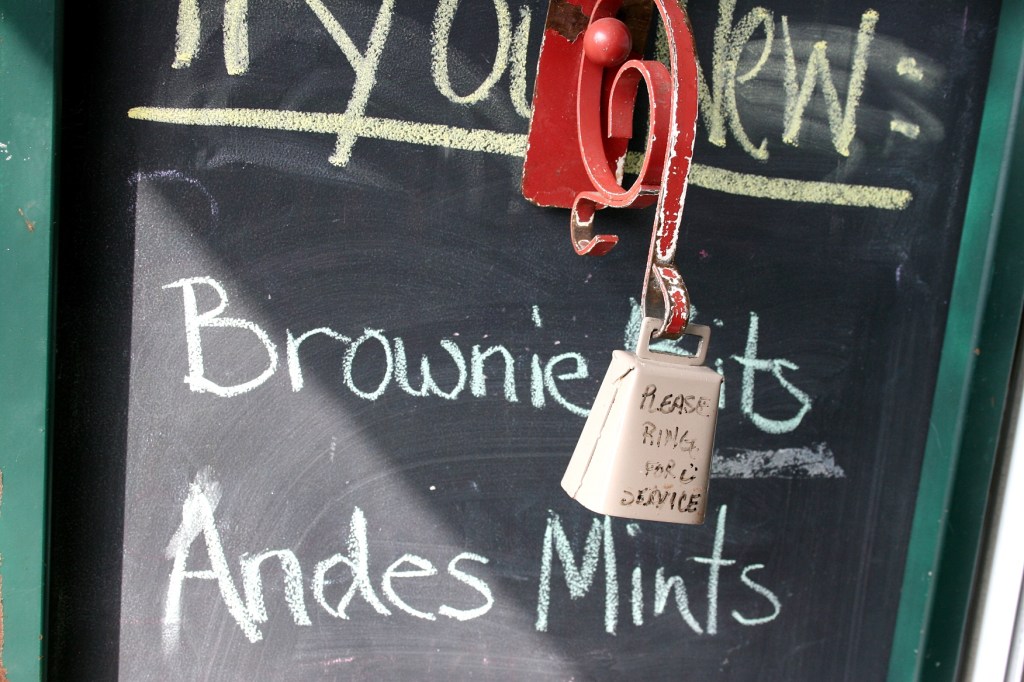 Try our New:
Brownie Bits
PLEASE
RING
FOR
SERVICE
Andes Mints